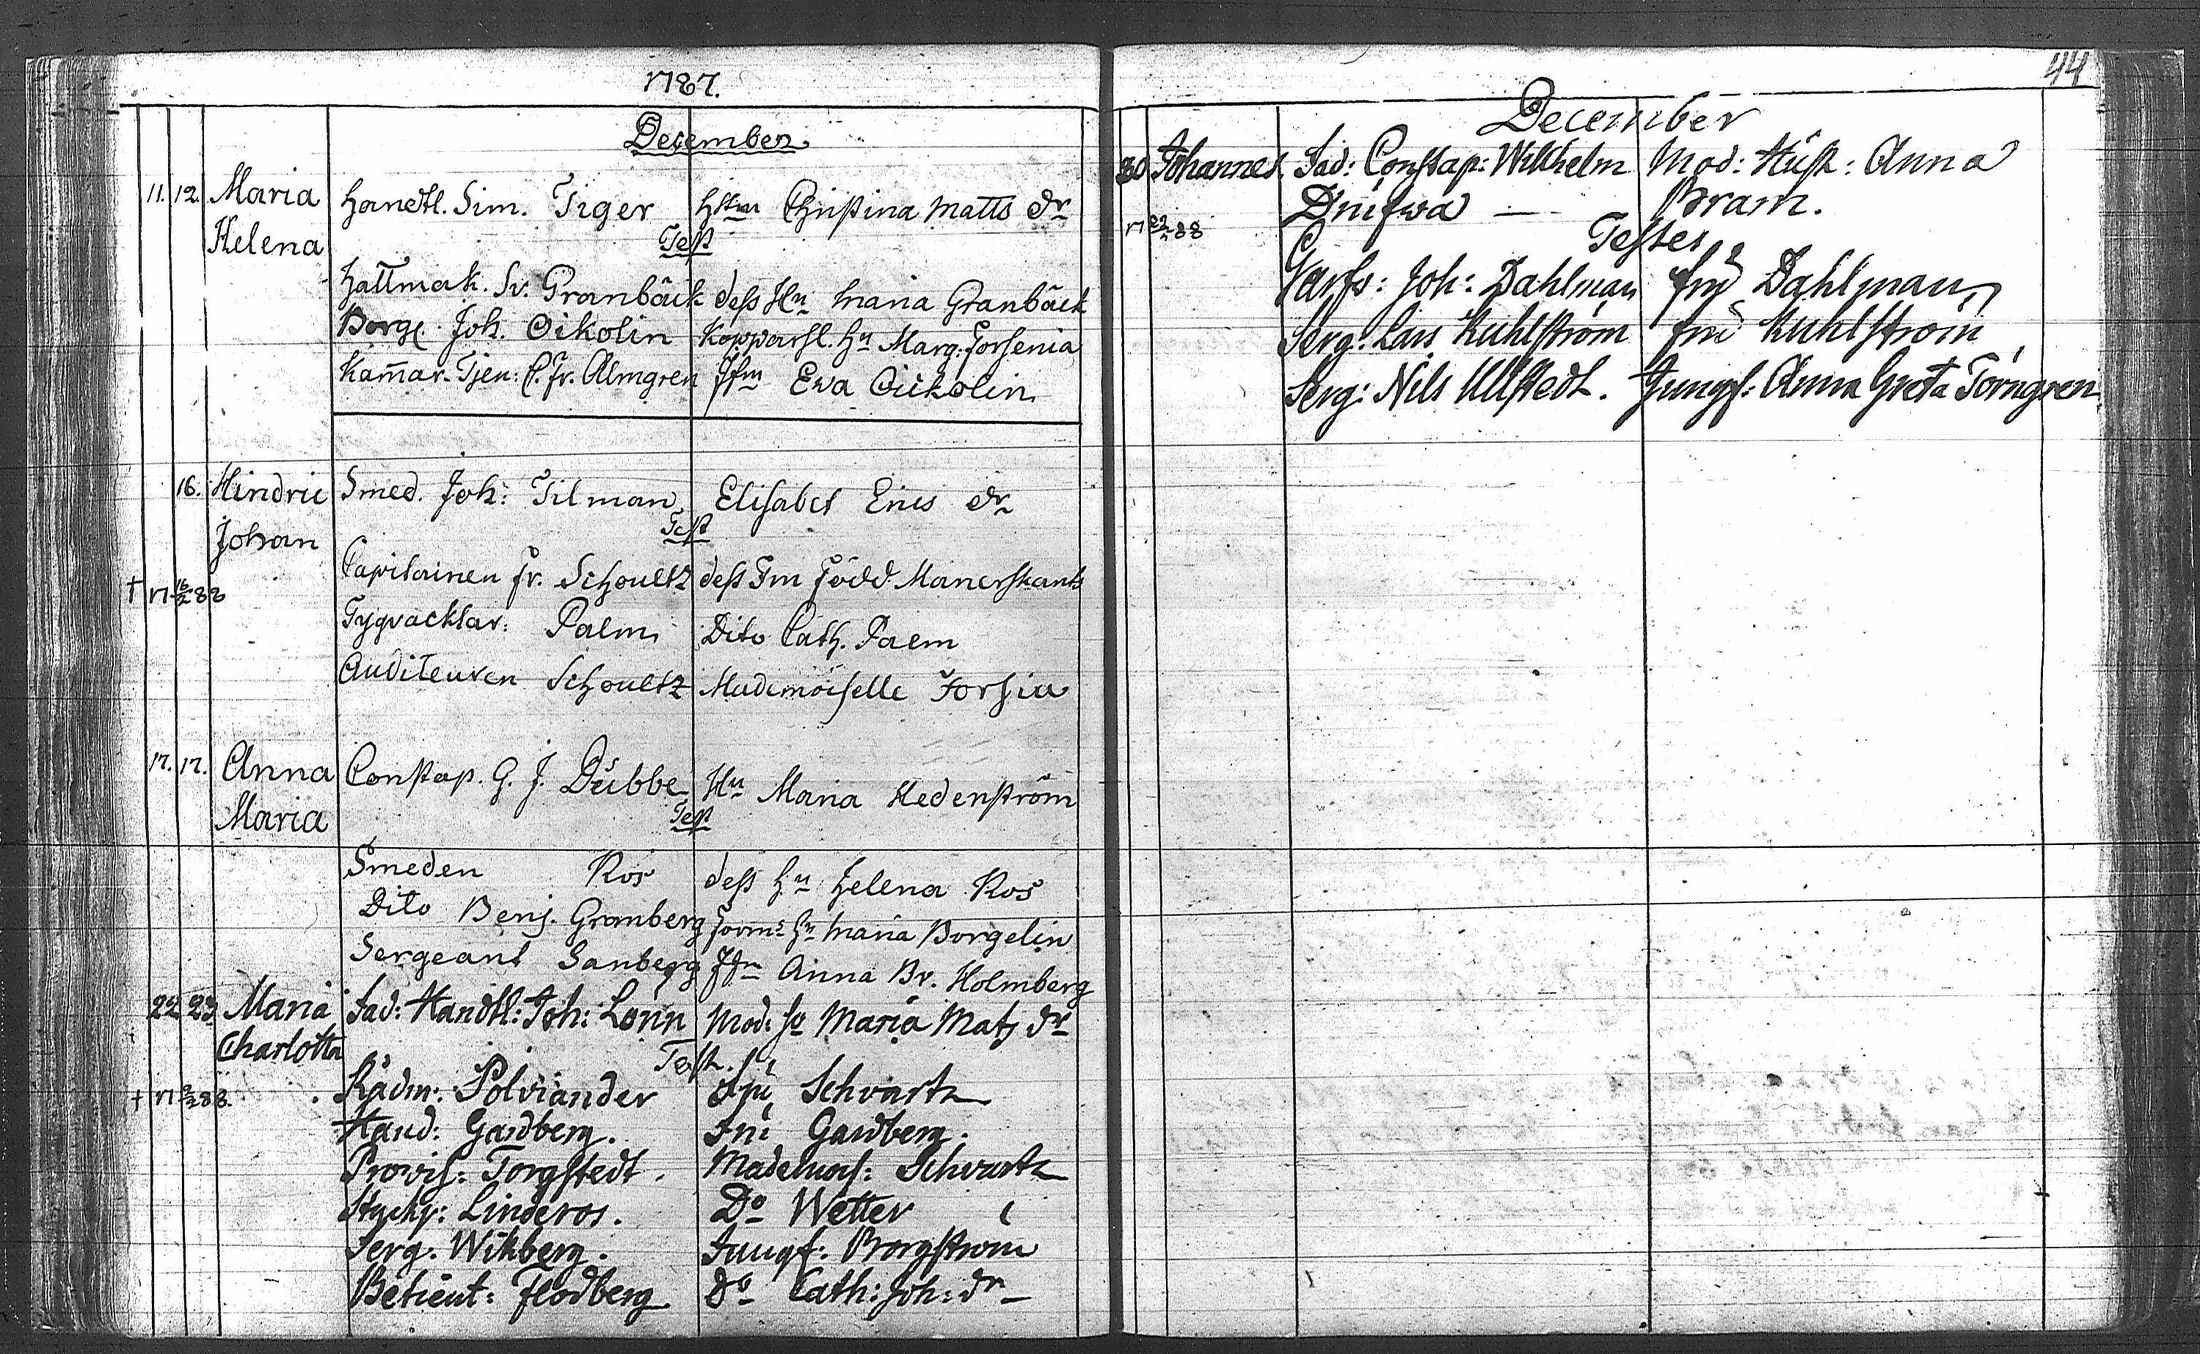 1787.
December
11. 12. Maria Handtl. Sim. Tiger Hstru Christina Matts dr
Helena
Test
Hattmak. Sv. Granbäck dess Hu Maria Granbäck
Borg. Joh. Oikolin Kopparsl. Hu Marg. Forsenia
Kammar-Tjen: C. Fr. Almgren Jfru Ewa Oickolin
16. Hindric Smed. Joh: Tilman Elisabet Erics dr
Johan
Test
Capitainen Fr. Schoultz dess Fru född Manerskants
† 17 16/2 88
Tygvacktar: Palm Dito Cath. Palm
Auditeuren Schoultz Mademoiselle Forsia
17. 17. Anna Constap. G. J. Dübbe Hu Maria Hedenström
Maria
Test
Smeden Ros dess Hu Helena Ros
Dito Benj. Granberg Hu Maria Borgelin
Sergeant Sanberg Jfru Anna Br. Holmberg
22 23 Maria Fad: Handtl: Joh: Lönn Mod: Maria Mats dr
Charlotta
Test.
† 17 2/2 88. Rådm: Polviander Fru Schvartz
Hand: Gardberg. Fru Gardberg.
Provis: Torgstedt. Mademois: Schvartz
Styckj: Linderos. Do Wetter
Serg. Wikberg. Jungf: Borgström
Betient: Flodberg Do Cath: Joh: dr
44
December
30 Johannes. Fad: Constap: Willhelm Mod: Hust: Anna
Bram.
17 88
Testes
Joh: Dahlman fru Dahlman,
Serg: Lars Kuhlström fru Kuhlström
Serg: Nils Ullstedt. Jungf: Anna Greta Törngren